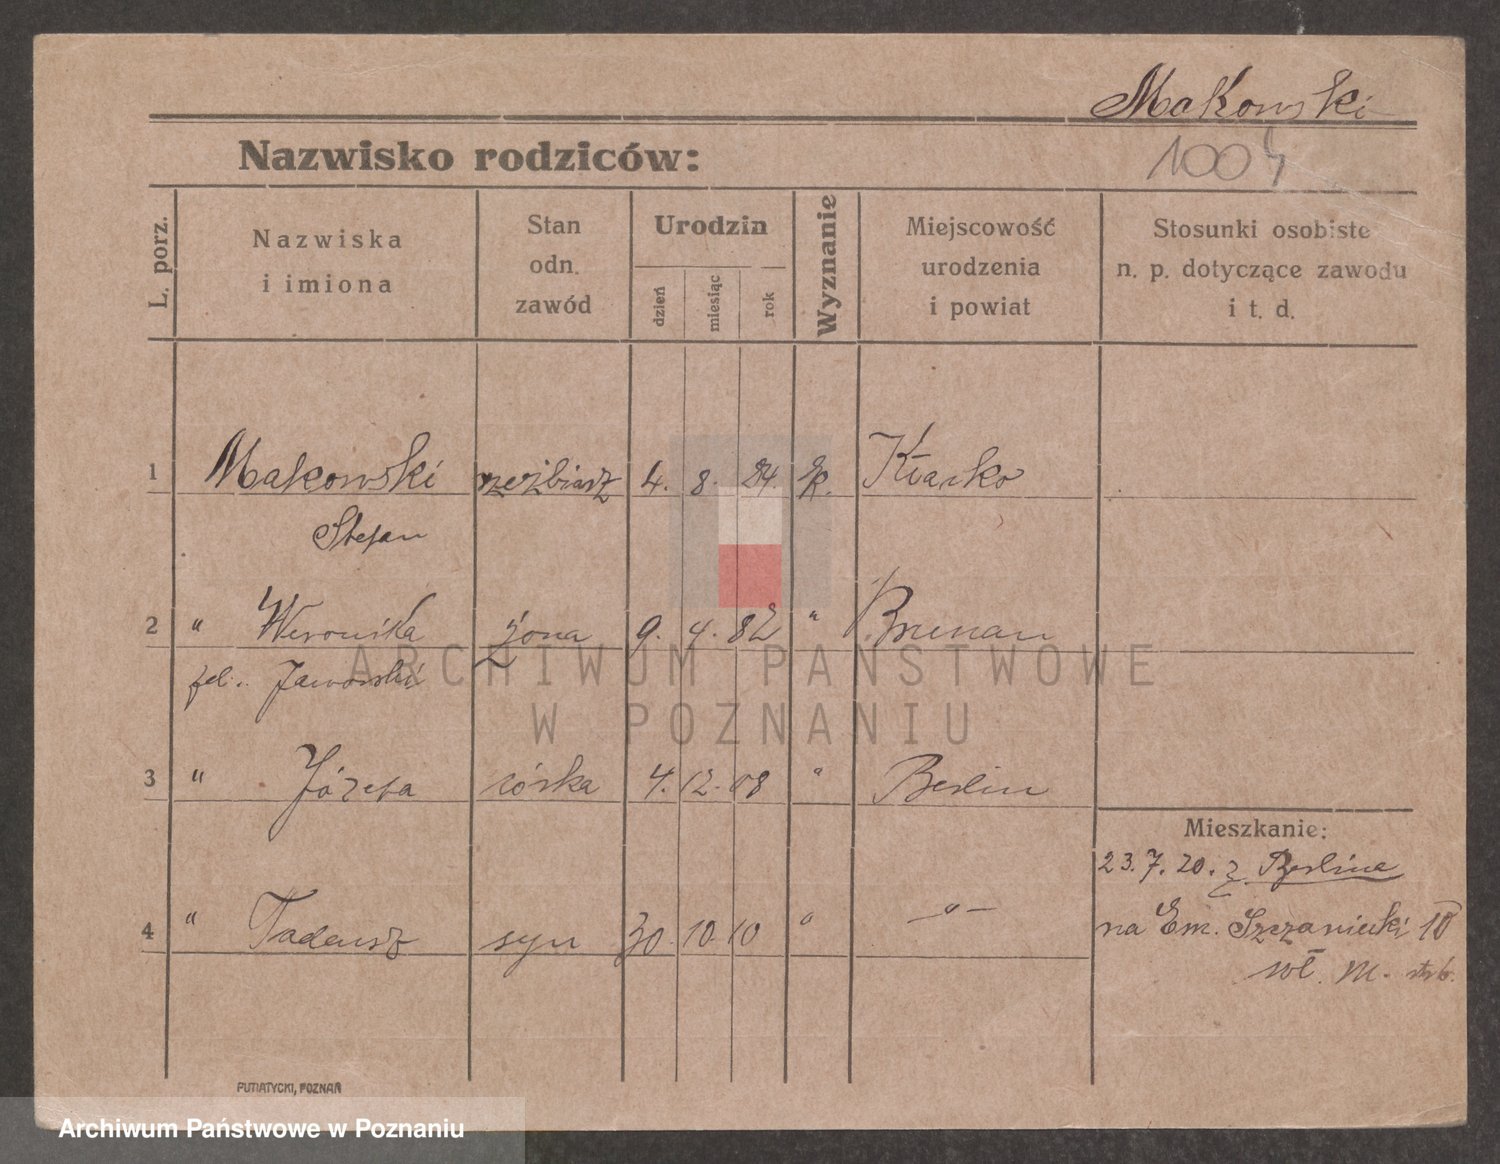 Makowski
1004
Nazwisko rodziców:
L. porz.
Nazwiska
i imiona
Stan
odn.
zawód
Urodzin
dzień
miesiąc
rok
Wyznanie
Miejscowość
urodzenia
i powiat
Stosunki osobiste
n. p. dotyczące zawodu
i t. d.
1 Makowski rzeźbiarz 4. 8. 84. rk.
Stefan
2 " Weronika żona 9. 4. 82 "
Jaworski
ARCHIWUM PAŃSTWOWE
W POZNANIU
3 " Józefa córka 4. 12. 08 " Berlin
Mieszkanie:
23. 7. 20. z Berlina
4 " Tadeusz syn 30. 10. 10 " —"—
na Em. Szczaniecki 10
wł. m.
PUTIATYCKI, POZNAŃ
Archiwum Państwowe w Poznaniu